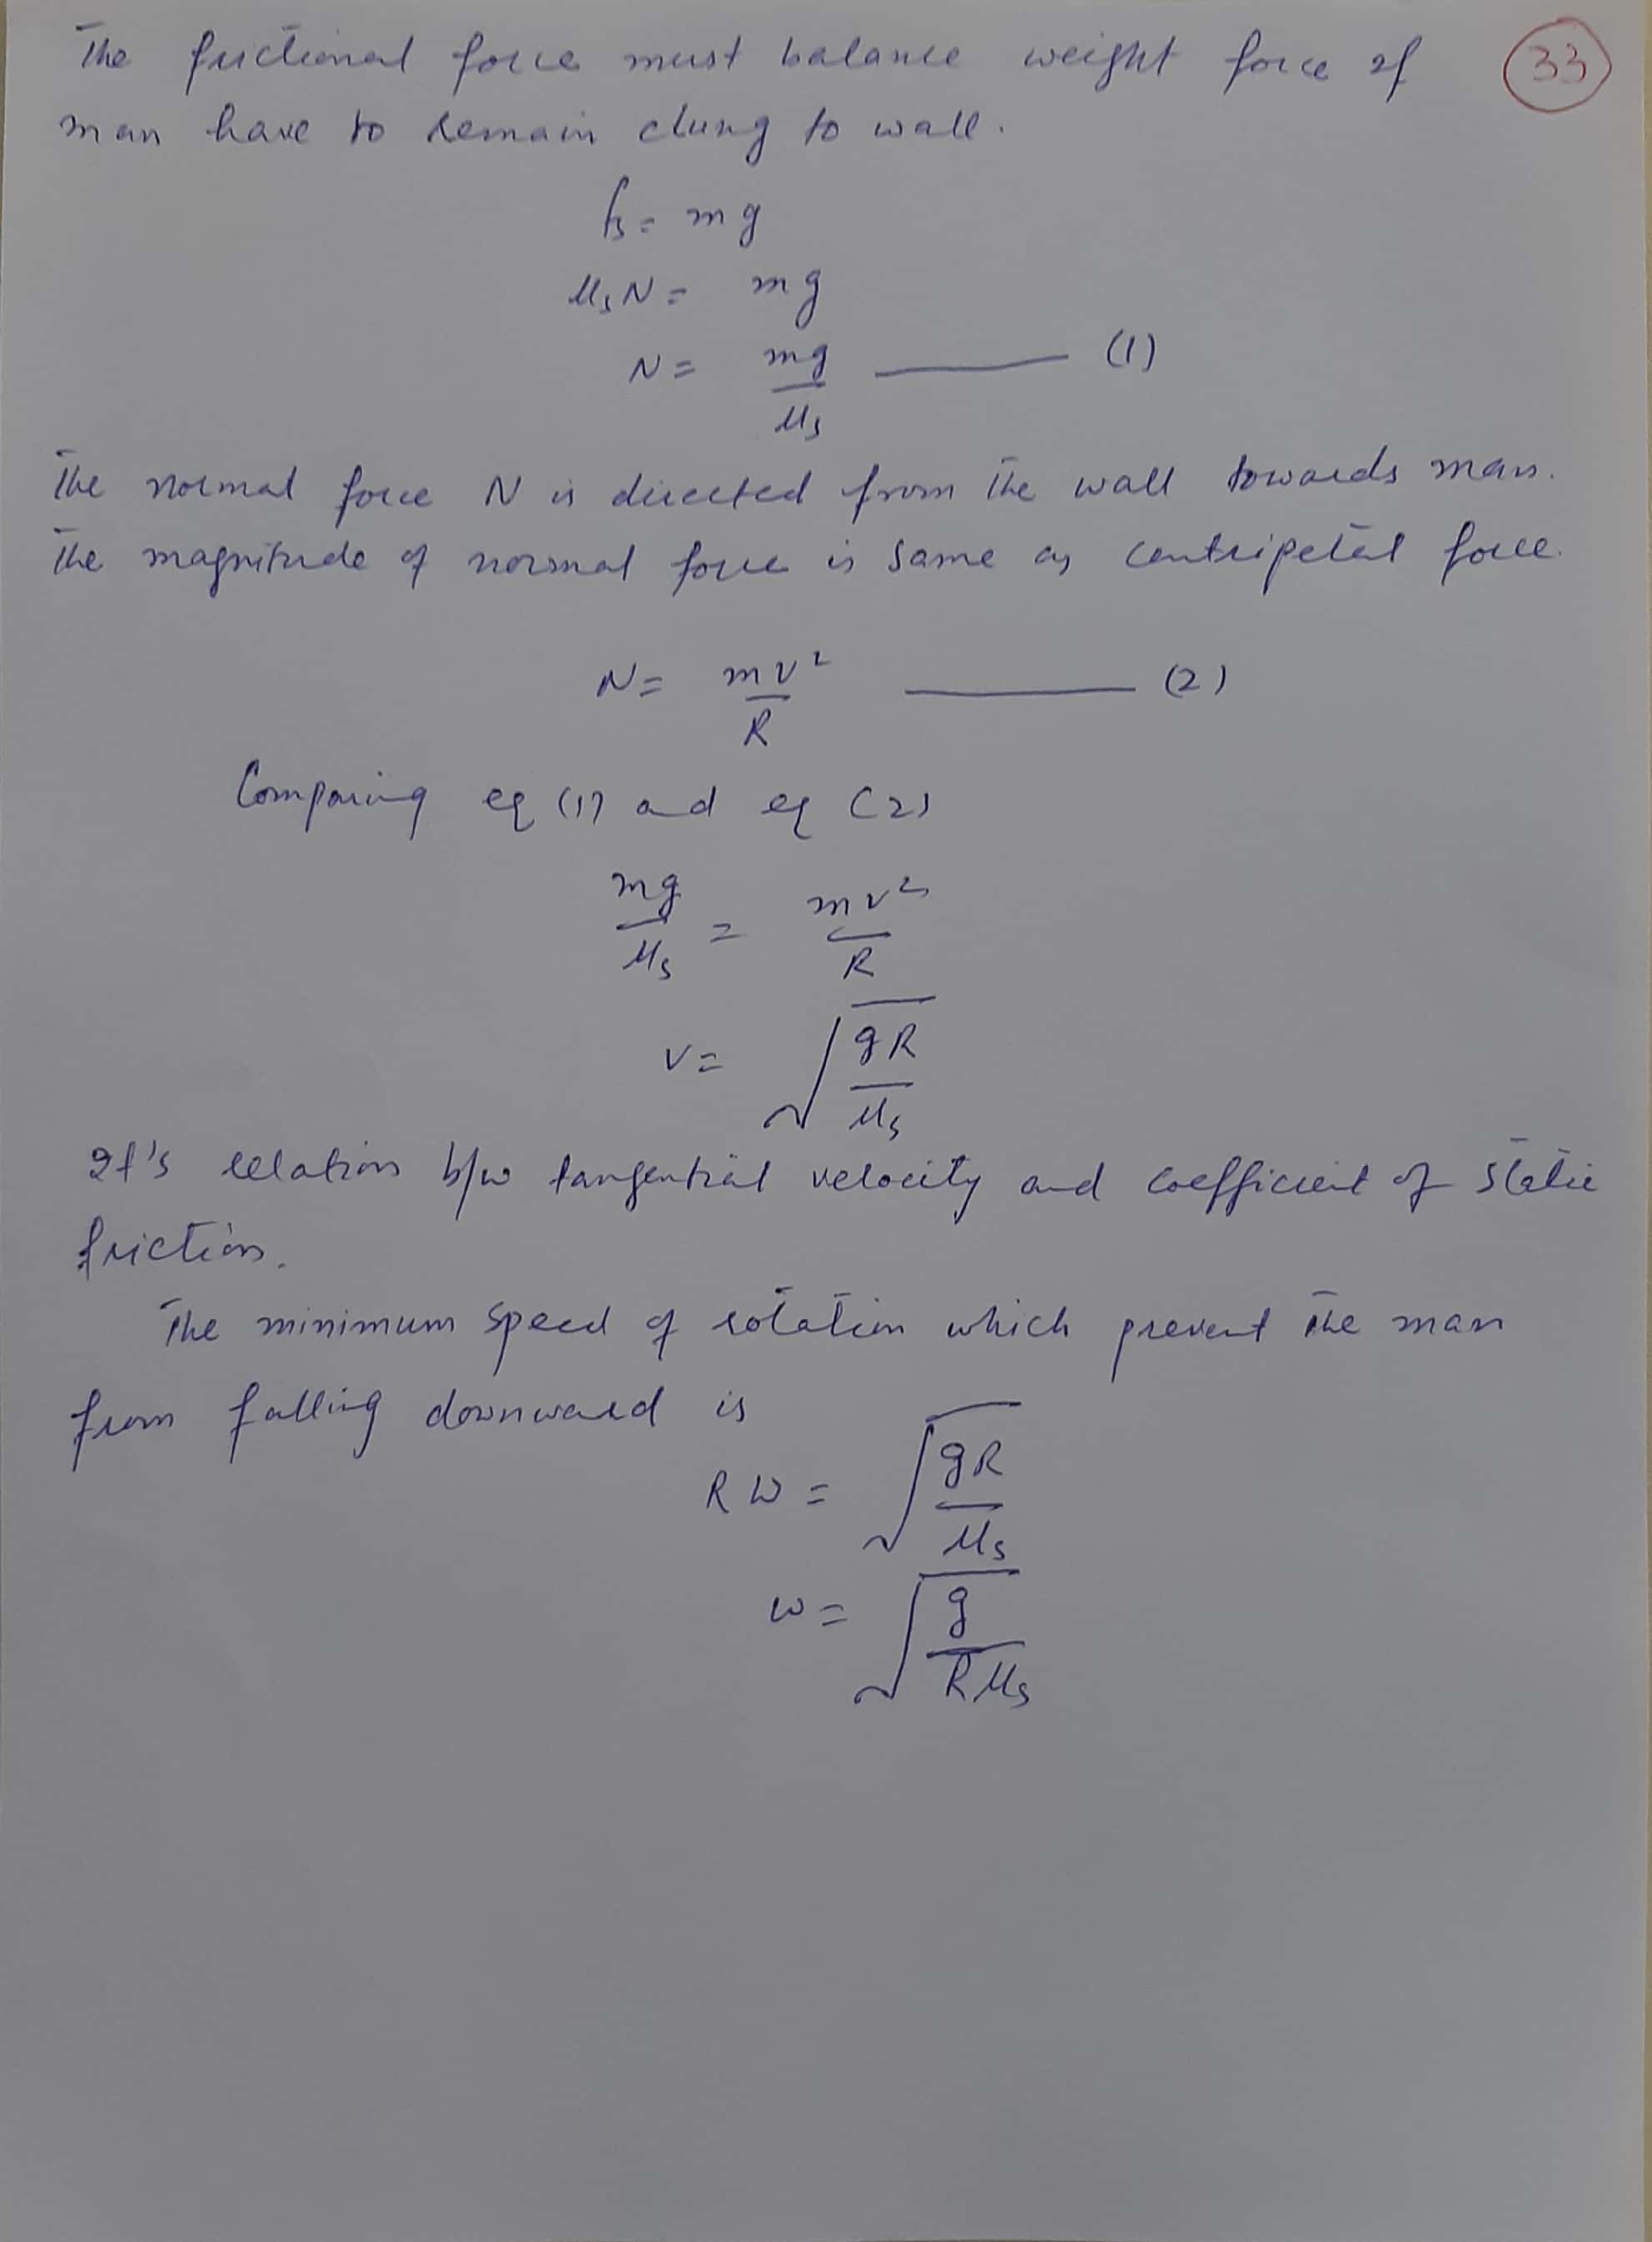 The frictional force must balance weight force if (33)
man have to remain clung to wall.
fs = mg
μsN = mg
N = mg/μs ——— (1)
The normal force N is directed from the wall towards man.
The magnitude of normal force is same as centripetal force.
N = mv²/R ——— (2)
Comparing eq (1) and eq (2)
mg/μs = mv²/R
v = √(gR/μs)
It's relation b/w tangential velocity and coefficient of static
friction.
The minimum speed of rotation which prevent the man
from falling downward is
Rω = √(gR/μs)
ω = √(g/Rμs)